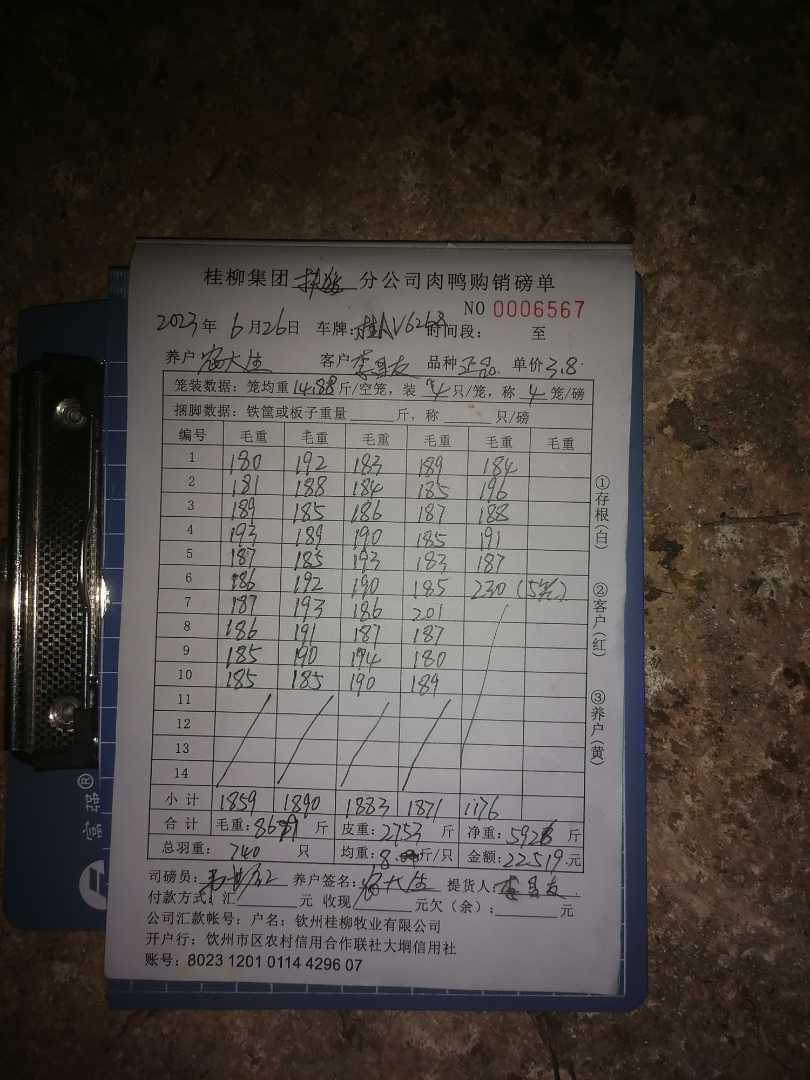 桂柳集团 分公司肉鸭购销磅单
NO 0006567
2023年 6月26日 车牌:桂AV6268 时间段: 至
养户 大生 客户 李昌友 品种 正品 单价 3.8
笼装数据:笼均重 14.88 斤/空笼,装 4 只/笼,称 4 笼/磅
捆脚数据:铁筐或板子重量 斤,称 只/磅
编号 毛重 毛重 毛重 毛重 毛重 毛重
1 180 192 183 189 184
2 181 188 184 185 196
3 189 185 186 187 188
4 193 189 190 185 191
5 187 185 193 183 187
6 186 192 190 185 230 (5笼)
7 187 193 186 201
8 186 191 187 187
9 185 190 194 180
10 185 185 190 189
11
12
13
14
小计 1859 1890 1883 1871 1176
合计 毛重: 斤 皮重:2753 斤 净重:5926 斤
总羽重: 740 只 均重:8. 斤/只 金额:22519 元
司磅员: 养户签名: 大生 提货人:李昌友
付款方式:汇 元 收现 元欠(余): 元
公司汇款帐号:户名:钦州桂柳牧业有限公司
开户行:饮州市区农村信用合作联社大垌信用社
账号:8023 1201 0114 4296 07
①存根(白)
②客户(红)
③养户(黄)
富强®